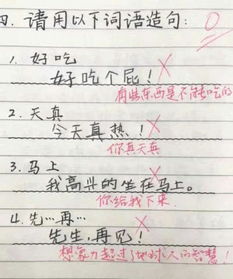 四. 请用以下词语造句: 0
1. 好吃
好吃个屁!
有些东西是不能吃的
2. 天真
今天真热!
你真天真
3. 马上
我高兴的坐在马上。
你给我下来.
4. 先…再…
先生,再见!
想象力超过地球人的智慧!